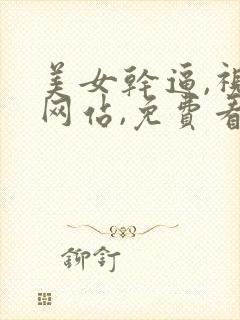 美女幹逼,視
网佔,免費看
鉚釘